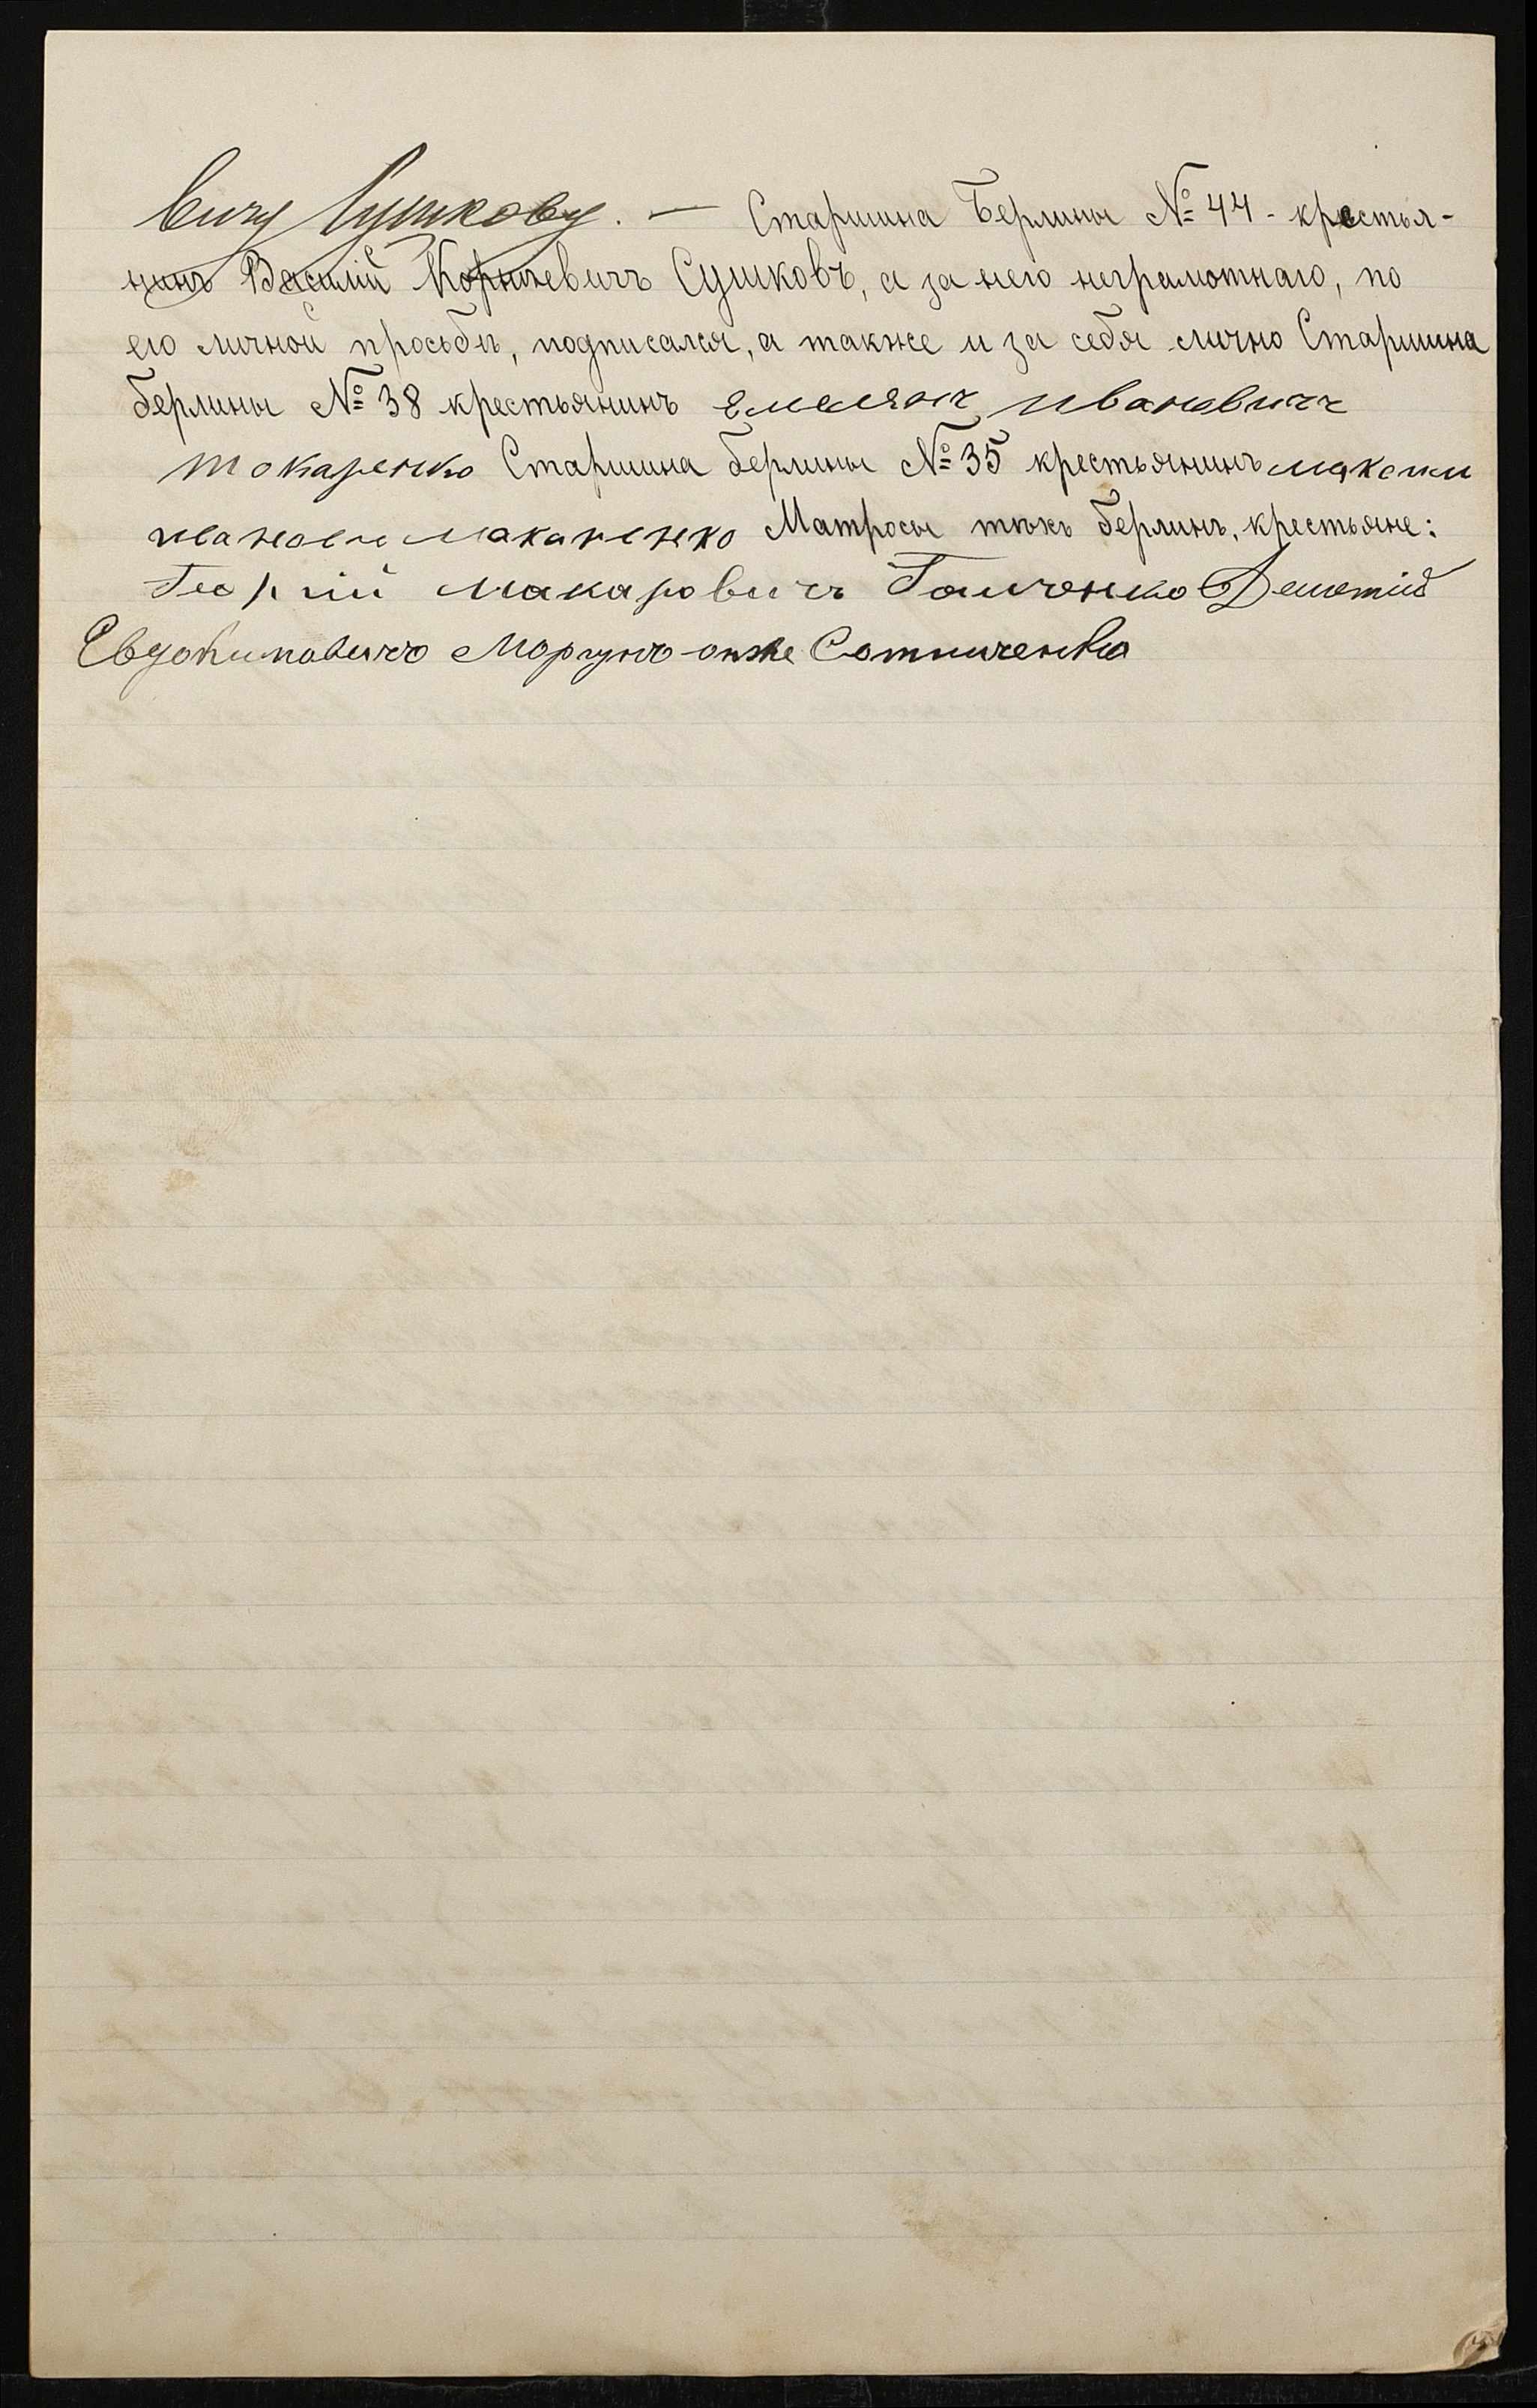 вичу Сушкову. — Старшина Берлины № 44 - крестья-
нинъ Василій Корнѣевичъ Сушковъ, а за него неграмотнаго, по
его личной просьбѣ, подписался, а также и за себя лично Старшина
берлины № 38 крестьянинъ Емелянъ Ивановичъ
токаренко Старшина берлины № 35 крестьянинъ максим
иванович макаренко Матросы тѣхъ берлинъ, крестьяне:
Георгій Макаровичъ Демотій
Евдокимовичъ Моргунъ-онже Сотниченко